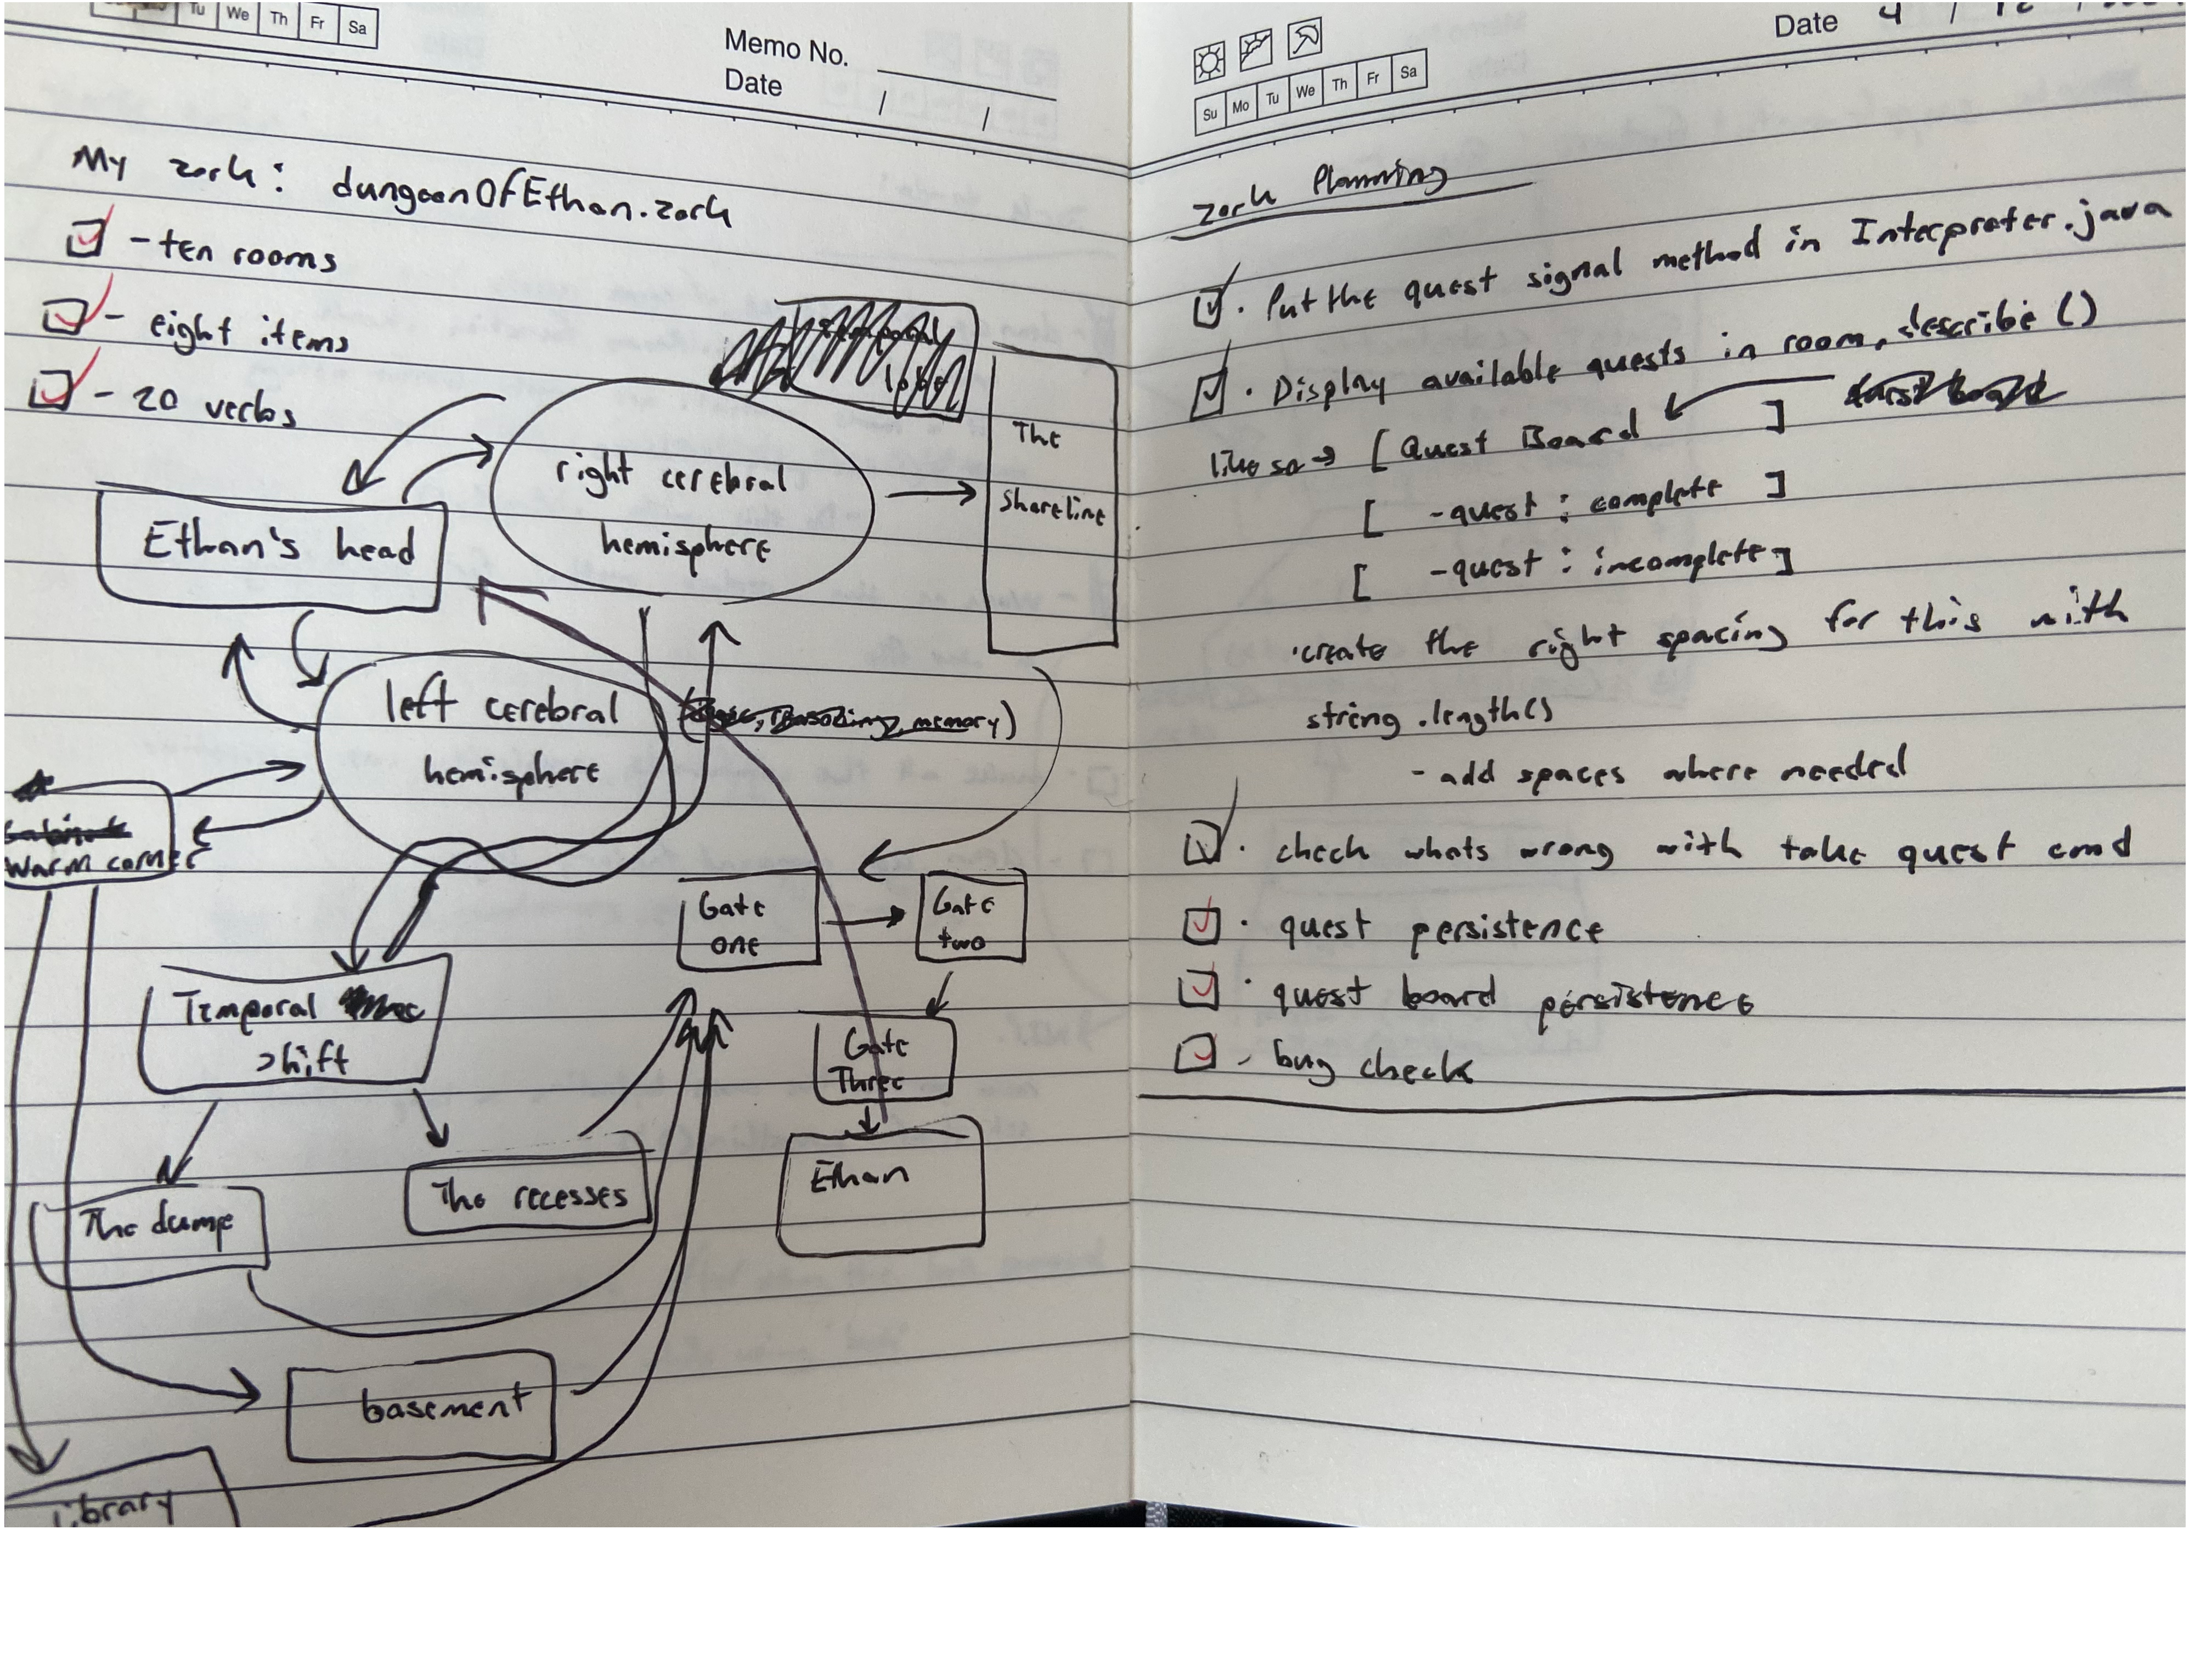 Tu We Th Fr Sa
Memo No.
Date / /
My zork: dungeonOfEthan.zork
- ten rooms
- eight items
- 20 verbs
right cerebral
hemisphere
The
Shoreline
Ethan's head
left cerebral
hemisphere
memory)
Warm corner
Gate
one
Gate
two
Temporal
shift
Gate
Three
The recesses
Ethan
The dump
basement
Library
Date 4 / 12 /
Su Mo Tu We Th Fr Sa
Zork Planning
· Put the quest signal method in Interpreter.java
· Display available quests in room.describe()
like so → [ Quest Board ]
[ -quest : complete ]
[ -quest : incomplete ]
·create the right spacing for this with
string.length()
- add spaces where needed
· check whats wrong with take quest cmd
· quest persistence
· quest board persistence
- bug check